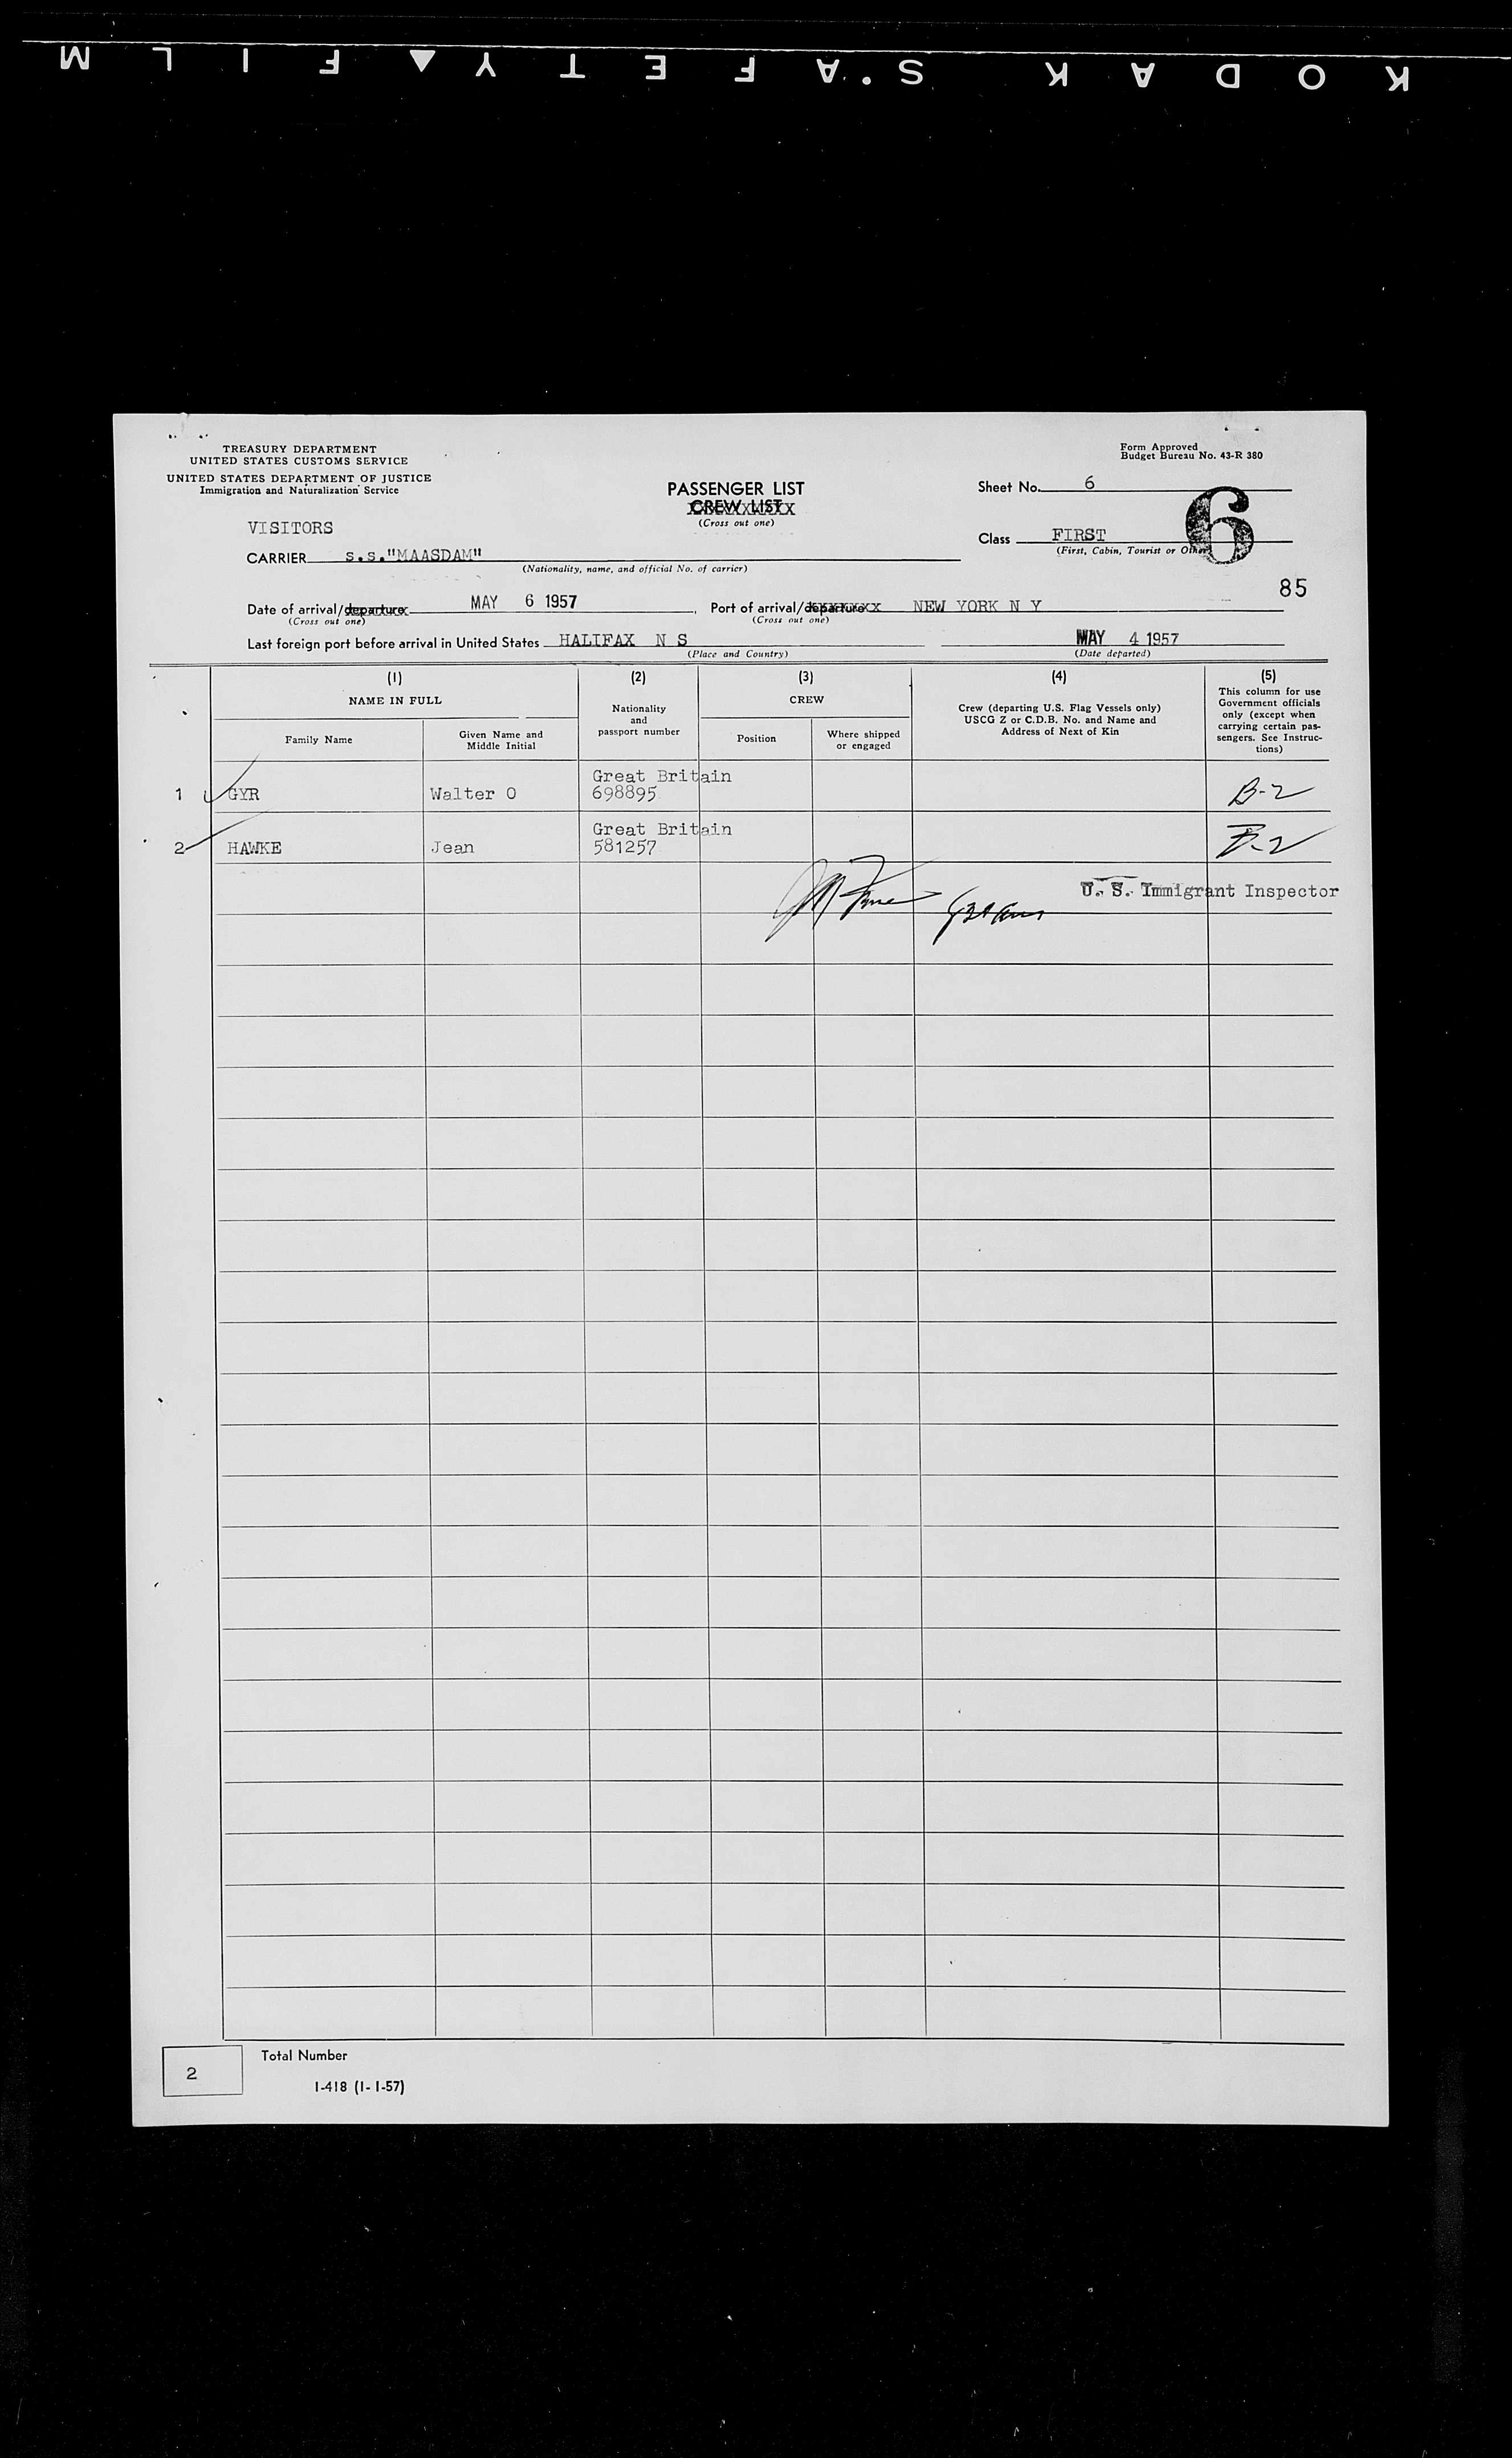 KODAK SAFETY FILM
TREASURY DEPARTMENT
UNITED STATES CUSTOMS SERVICE
UNITED STATES DEPARTMENT OF JUSTICE
Immigration and Naturalization Service
Form Approved
Budget Bureau No. 43-R 380
PASSENGER LIST
CREW LIST
(Cross out one)
Sheet No. 6
6
VISITORS
Class FIRST
(First, Cabin, Tourist or Other)
CARRIER s.s."MAASDAM"
(Nationality, name, and official No. of carrier)
85
Date of arrival/departure MAY 6 1957, Port of arrival/departure NEW YORK N Y
(Cross out one) (Cross out one)
Last foreign port before arrival in United States HALIFAX N S MAY 4 1957
(Place and Country) (Date departed)
(1) (2) (3) (4) (5)
NAME IN FULL
Family Name
Given Name and
Middle Initial
Nationality
and
passport number
CREW
Position
Where shipped
or engaged
Crew (departing U.S. Flag Vessels only)
USCG Z or C.D.B. No. and Name and
Address of Next of Kin
This column for use
Government officials
only (except when
carrying certain pas-
sengers. See Instruc-
tions)
Great Britain
1 GYR Walter O 698895 B-2
Great Britain
2 HAWKE Jean 581257 B-2
U. S. Immigrant Inspector
2 Total Number
I-418 (1-1-57)